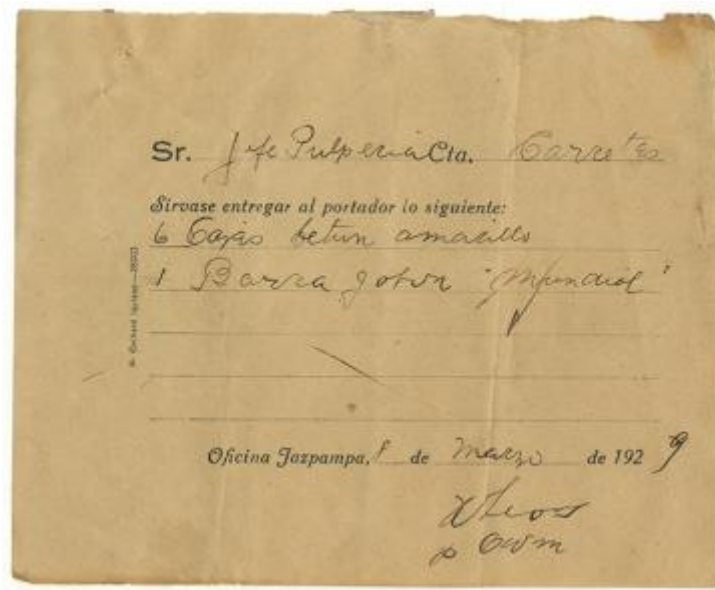 Sr. Jefe Pulperia Cta. Carretas
Sírvase entregar al portador lo siguiente:
6 Cajas betun amarillo
1 Barra Jabon "Mundial"
Oficina Jazpampa, 8 de Marzo de 1929